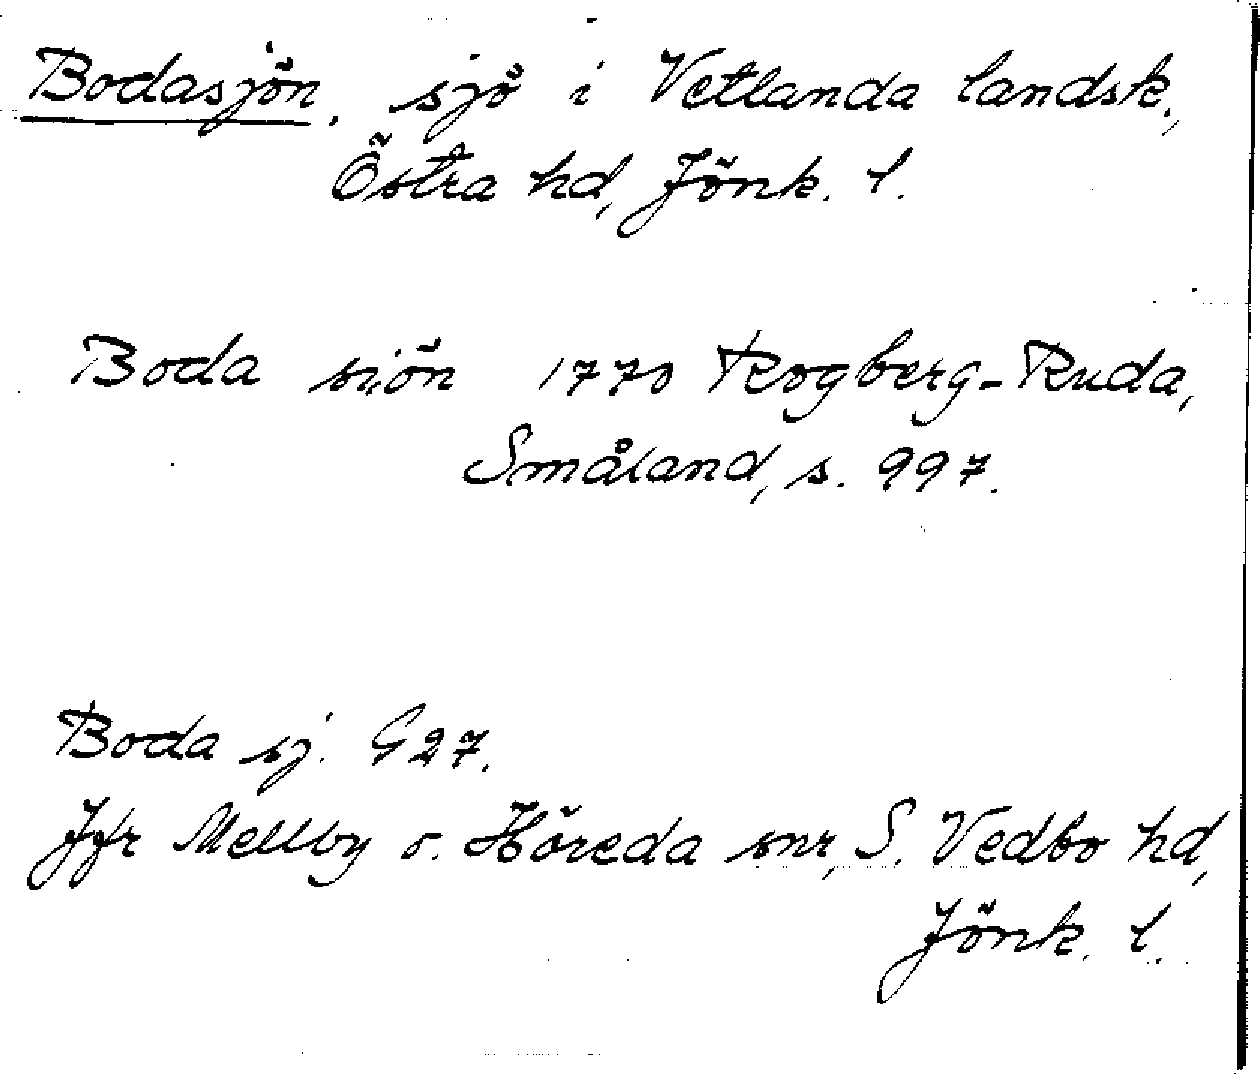 Bodasjön, sjö i Vetlanda landsk.,
Östra hd, Jönk. l.
Boda siön 1770 Rogberg-Ruda,
Småland, s. 997.
Boda sj. G27.
Jfr Mellby o. Höreda snr, S. Vedbo hd,
Jönk. l.